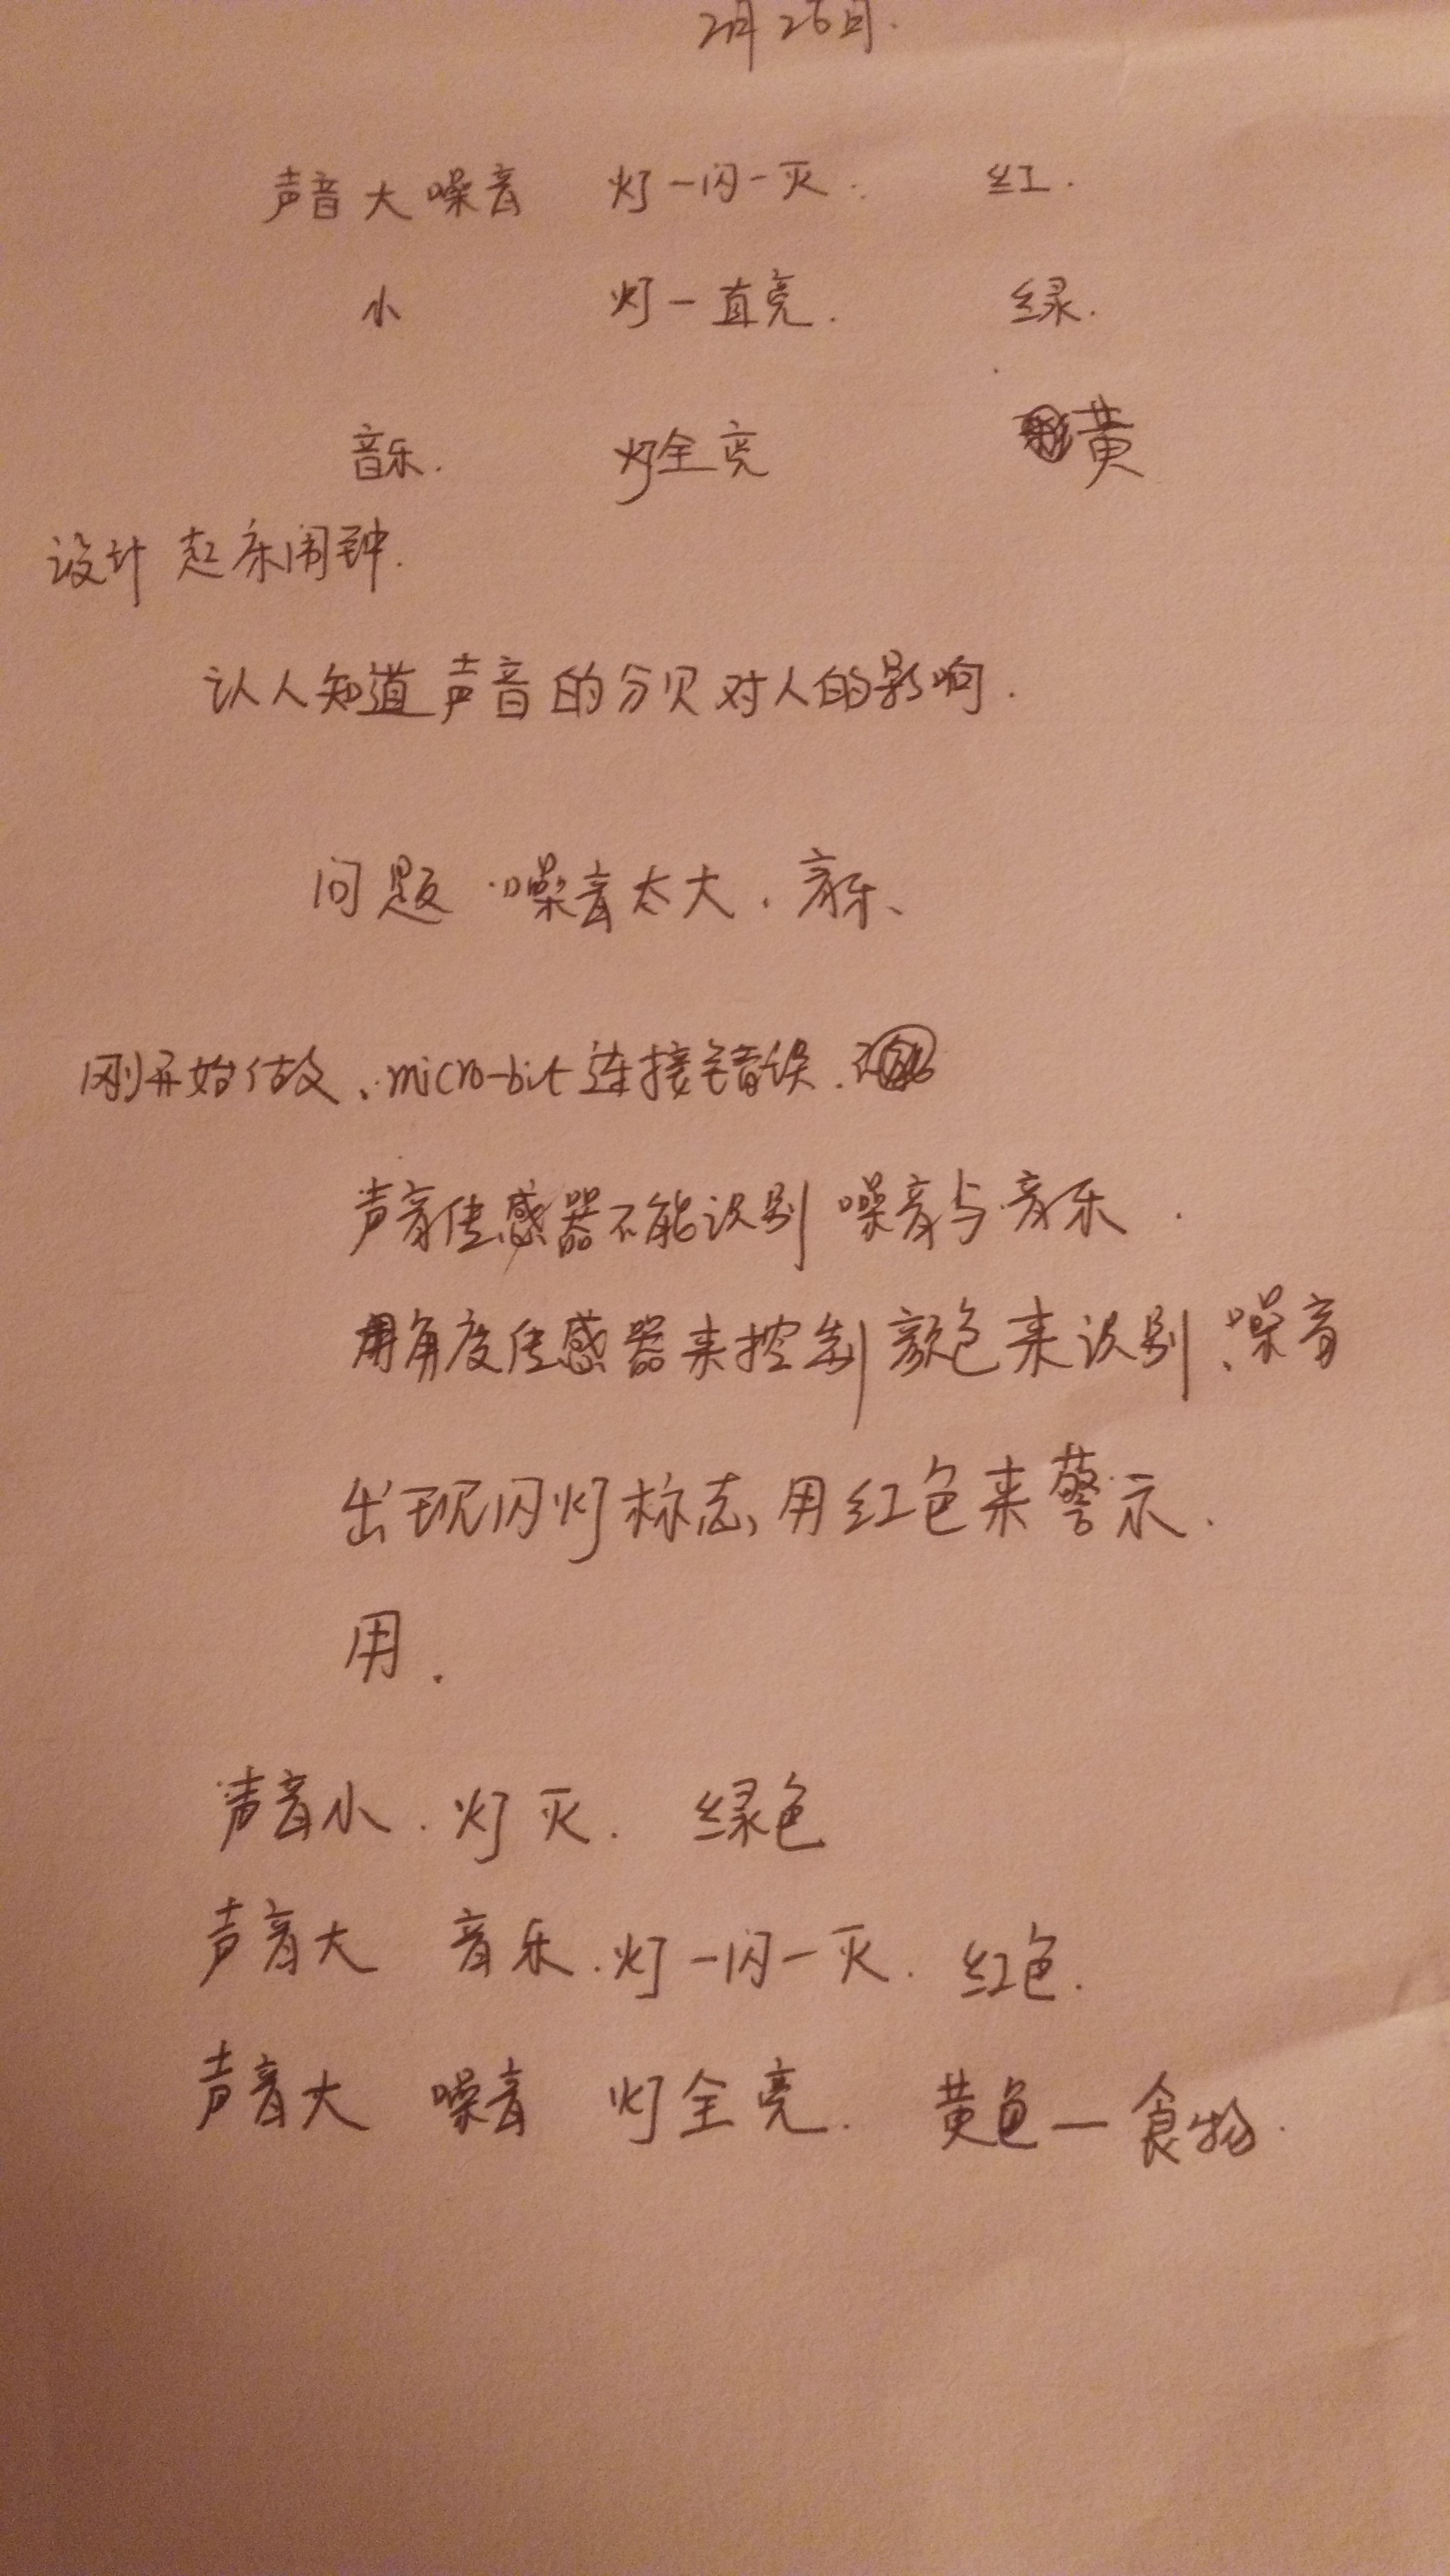 2月26日.
声音大噪音 灯一闪一灭. 红.
小 灯一直亮. 绿.
音乐. 灯全亮 黄
设计 起床闹钟.
认人知道声音的分贝对人的影响.
问题 噪音太大. 音乐、
刚开始做、micro-bit连接错误.
声音传感器不能识别 噪音与音乐.
用角度传感器来控制颜色来识别、噪音
出现闪灯标志,用红色来警示.
用.
声音小. 灯灭. 绿色
声音大 音乐.灯一闪一灭. 红色.
声音大 噪音 灯全亮. 黄色一食物.